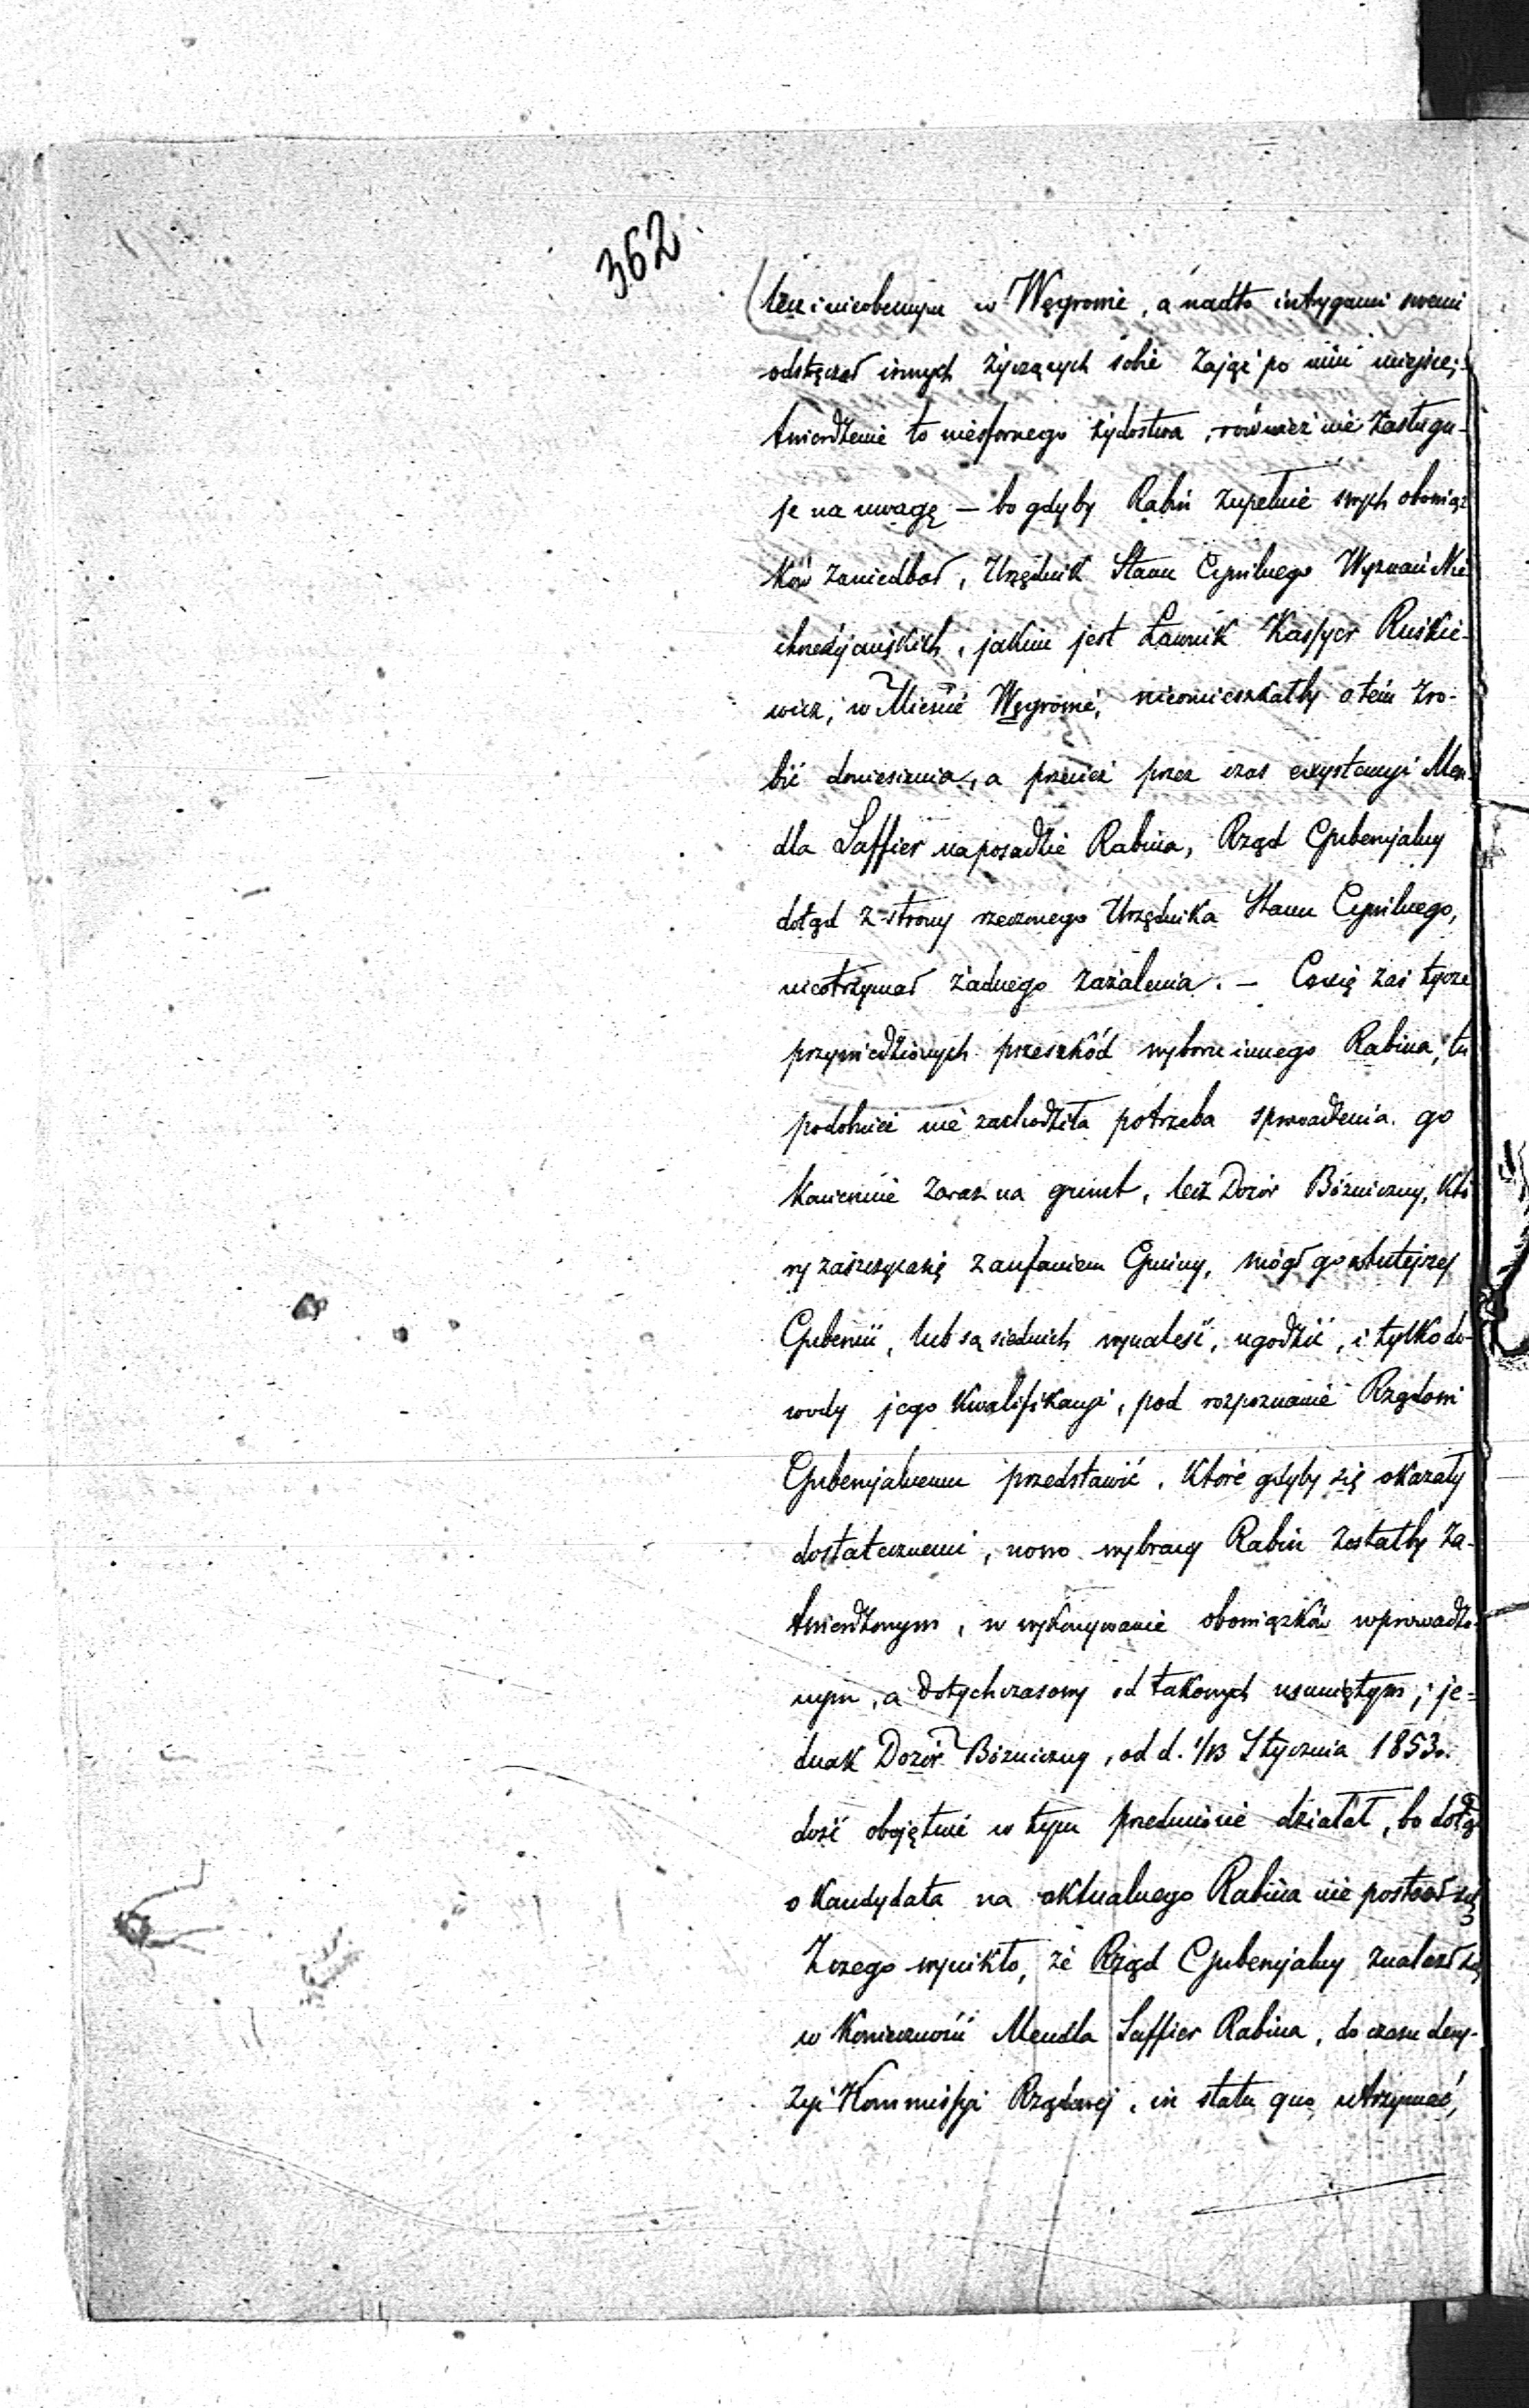 362
lecz i nieobecnym w Węgrowie, a nadto intrygami swemi
odstręczał innych życzących sobie zająć po nim miejsce;
twierdzenie to niesfornego żydostwa, również nie zasługu-
je na uwagę – bo gdyby Rabin zupełnie swych obowiąz
ków zaniedbał, Urzędnik Stanu Cywilnego Wyznań Nie
chrześcijańskich, jakim jest Ławnik Kasper Ruśkie-
wicz, w Mieście Węgrowie, nieomieszkałby o tém zro-
bić doniesienia, a przecież przez czas exystencyi Men-
dla Saffier na posadzie Rabina, Rząd Gubernjalny
dotąd z strony rzeczonego Urzędnika Stanu Cywilnego,
nieotrzymał żadnego zażalenia. – Co się zaś tycze
przywiedzionych przeszkód wyboru innego Rabina, tu
podobnież nie zachodziła potrzeba sprowadzenia go
koniecznie zaraz na grunt, lecz Dozór Bóżniczny, któ
ry zaszczyca się zaufaniem Gminy, mógł go w tutejszej
Gubernii, lub sąsiednich wynaleść, ugodzić, i tylko do-
wody jego kwalifikacyi, pod rozpoznanie Rządowi
Gubernjalnemu przedstawić, które gdyby się okazały
dostatecznemi, nowo wybrany Rabin zostałby za-
twierdzonym, w wykonywanie obowiązków wprowadzo-
nym, a dotychczasowy od takowych usuniętym; je-
dnak Dozór Bóżniczny, od d. 1/13 Stycznia 1853 r.
dość obojętnie w tym przedmiocie działał, bo dotąd
o kandydata na aktualnego Rabina nie postarał się
Z czego wynikło, że Rząd Gubernjalny znalazł się
w konieczności Mendla Saffier Rabina, do czasu decy-
zyi Kommissyi Rządowej, in statu quo utrzymać,